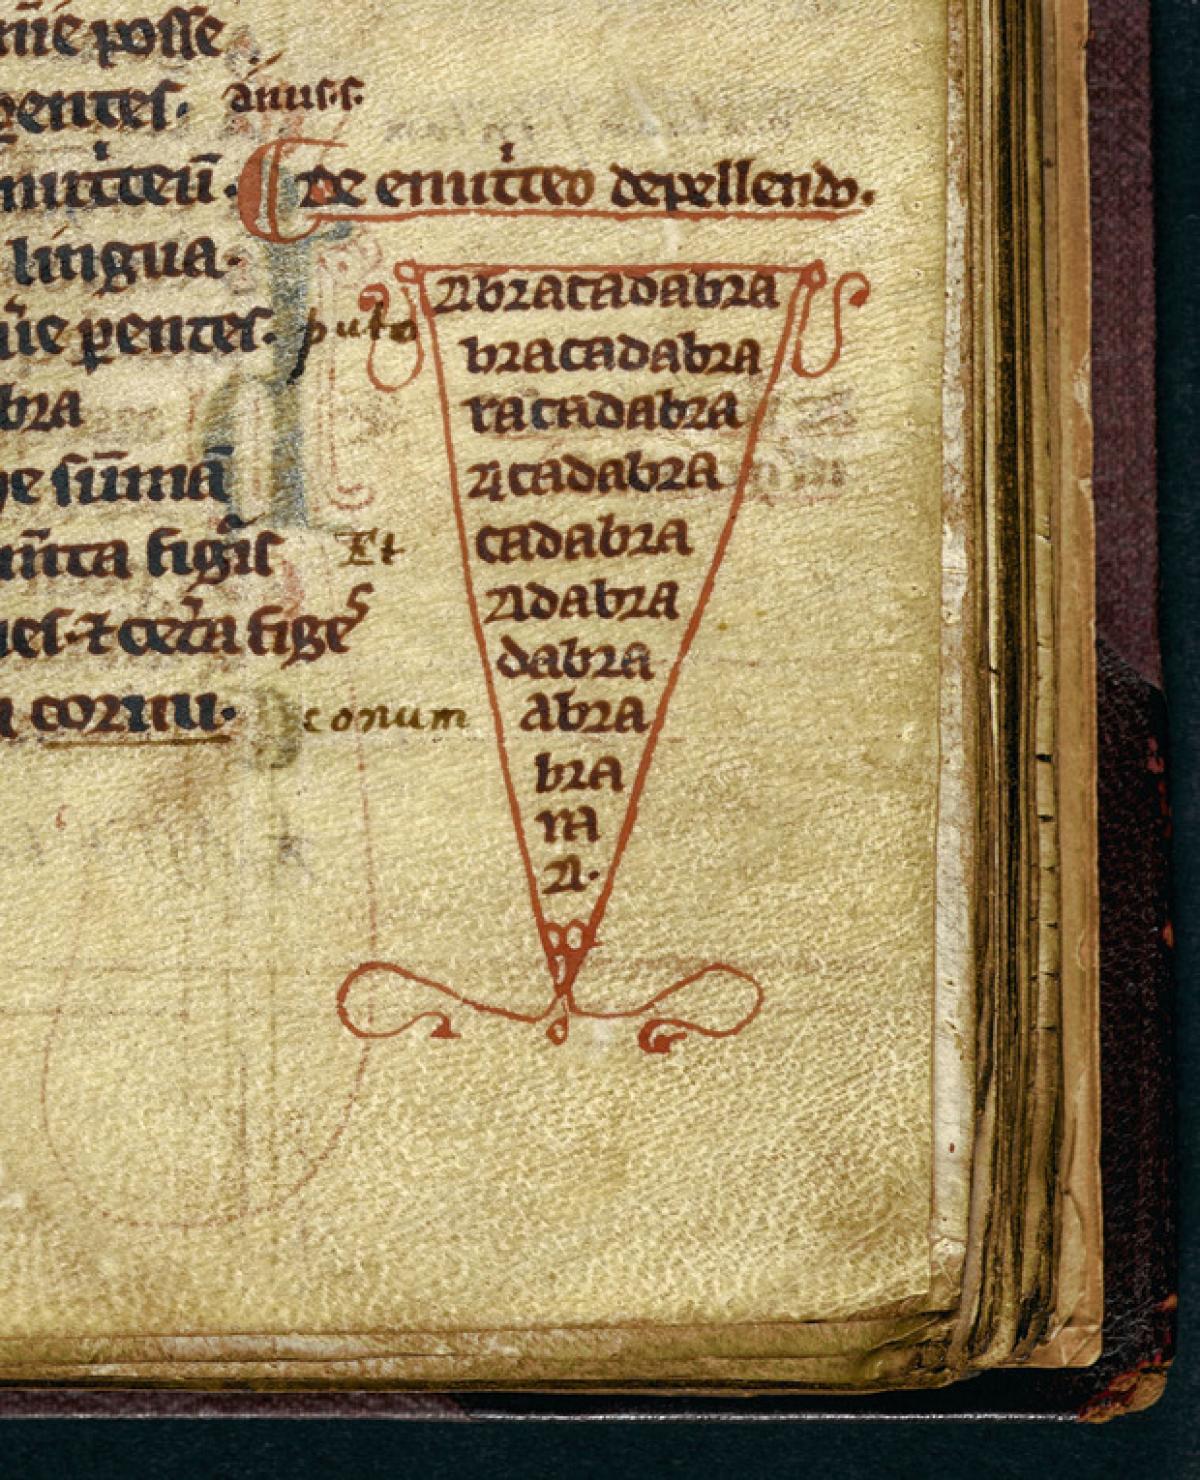 n̄e posse
gentes. anus.s.
mitteū. De emitteo depellendo.
lingua.
ūe pentes. puto
bra
e sūmā
mīta figis Et
ues. ⁊ cet̾a fige s
cornu. conum
Abracadabra
bracadabra
racadabra
Acadabra
cadabra
Adabra
dabra
Abra
bra
ra
A.